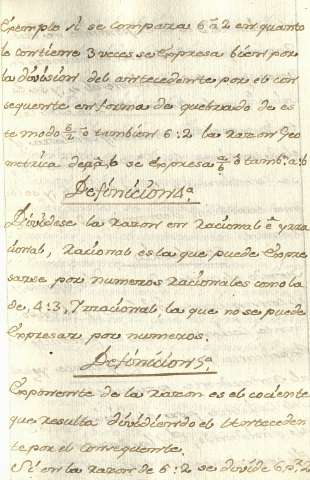 Exemplo si se compara 6 à 2 en quanto
le contiene 3 veces se expresa bien por
la division del antecedente por el con
sequente en forma de quebrado de es
te modo 6/2 ò tambien 6:2 la razon Geo
metrica de a, b se expresa a/b ò tamb. a:b
Definicion 4ª
Dividese la razon en racional è yrra
cional, racional es la que puede Expre
sarse por numeros racionales como la
de, 4:3, Yrracional, la que no se puede
Expresar por numeros.
Definicion 5ª
Exponente de la razon es el cociente
que resulta dividiendo el Anteceden
te por el consequente.
Si en la razon de 6:2 se divide 6 pr. 2